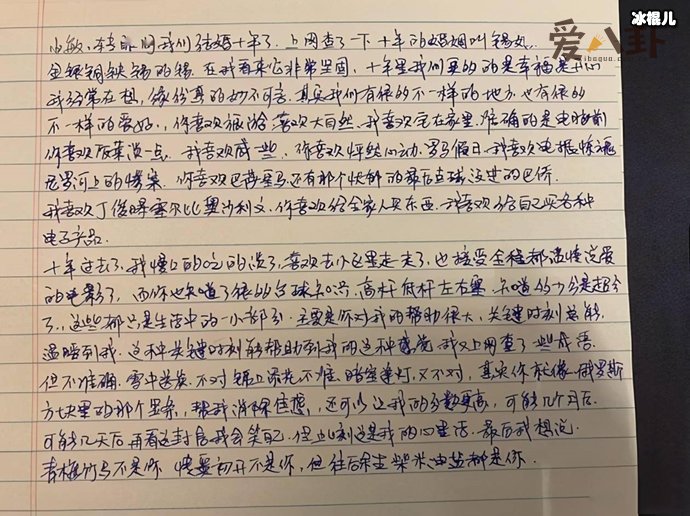 冰棍儿
爱八卦
小敏,我们结婚十年了.上网查了一下十年的婚姻叫锡婚.
金银铜铁锡的锡.在我看来它非常坚固,十年里我们更多的是幸福是开心
我经常在想,缘份真的妙不可言.其实我们有很多不一样的地方,也有很多
不一样的爱好.你喜欢旅游喜欢大自然.我喜欢宅在家里.准确的是电脑前
你喜欢饭菜淡一点.我喜欢咸一些,你喜欢怦然心动.罗马假日.我喜欢电锯惊魂
尼罗河上的惨案.你喜欢巴萨皇马还有那个快倒的最后点球没进的巴乔
我喜欢丁俊晖塞尔比奥沙利文.你喜欢给全家人买东西.我喜欢给自己买各种
电子产品.
十年过去了,我慢慢的吃的淡了,喜欢去小区里走一走了,也接受全程都谈情说爱
的电影了,而你也知道了很多台球知识.高杆低杆左右塞.知道147分是超分
了,这些都只是生活中的一小部分.主要是你对我的帮助很大,关键时刻总能
温暖到我.这种关键时刻能帮助到我的这种感觉.我又上网查了一些成语.
但不准确.雪中送炭.不对 锦上添花不准.暗室逢灯,又不对,其实你就像俄罗斯
方块里的那个竖条,帮我消除住想,还可以让我的分数更高,可能几个月后.
可能几天后再看这封信我会笑自己.但此刻这是我的心里话.最后我想说.
青梅竹马不是你 情窦初开不是你,但往后余生柴米油盐都是你.